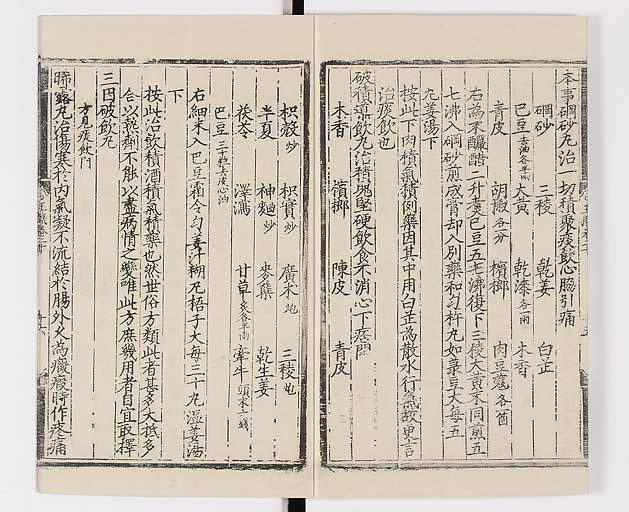 本事硇砂丸治一切積聚痰飲心脇引痛
硇砂 三稜 乾姜 白芷
巴豆去油各半兩 大黃 乾漆各一兩 木香
青皮 胡椒各一分 檳榔 肉豆蔻各一箇
右為末釅醋二升煑巴豆五七沸後下三稜大黃末同煎五
七沸入硇砂煎成膏却入別藥和勻杵丸如菉豆大每五
丸姜湯下
按此下肉積氣積例藥因其中用白芷為散水行氣故更言
治痰飲也
破積導飲丸治積塊堅硬飲食不消心下痞悶
木香 檳榔 陳皮 青皮
枳殼炒 枳實炒 廣朮炮 三稜炮
半夏 神麯炒 麥糵 乾生姜
茯苓 澤瀉 甘草炙各半兩 牽牛頭末一錢
巴豆三十粒去皮心油
右細末入巴豆霜令勻姜汁糊丸梧子大每三十丸溫姜湯
下
按此治飲積酒積氣積藥也然世俗方類此者甚多大抵多
合以燕劑不能以盡病情之變唯此方庶幾用者自宜取擇
三因破飲丸
方見痰飲門
晞露丸治傷寒於內氣凝不流結於腸外久為癥瘕時作疼痛